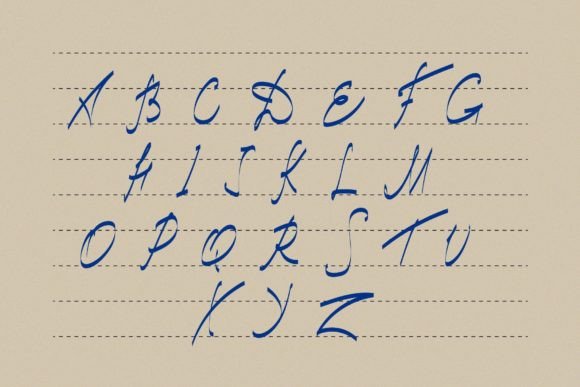 A B C D E F G
H I J K L M
O P Q R S T U
X Y Z